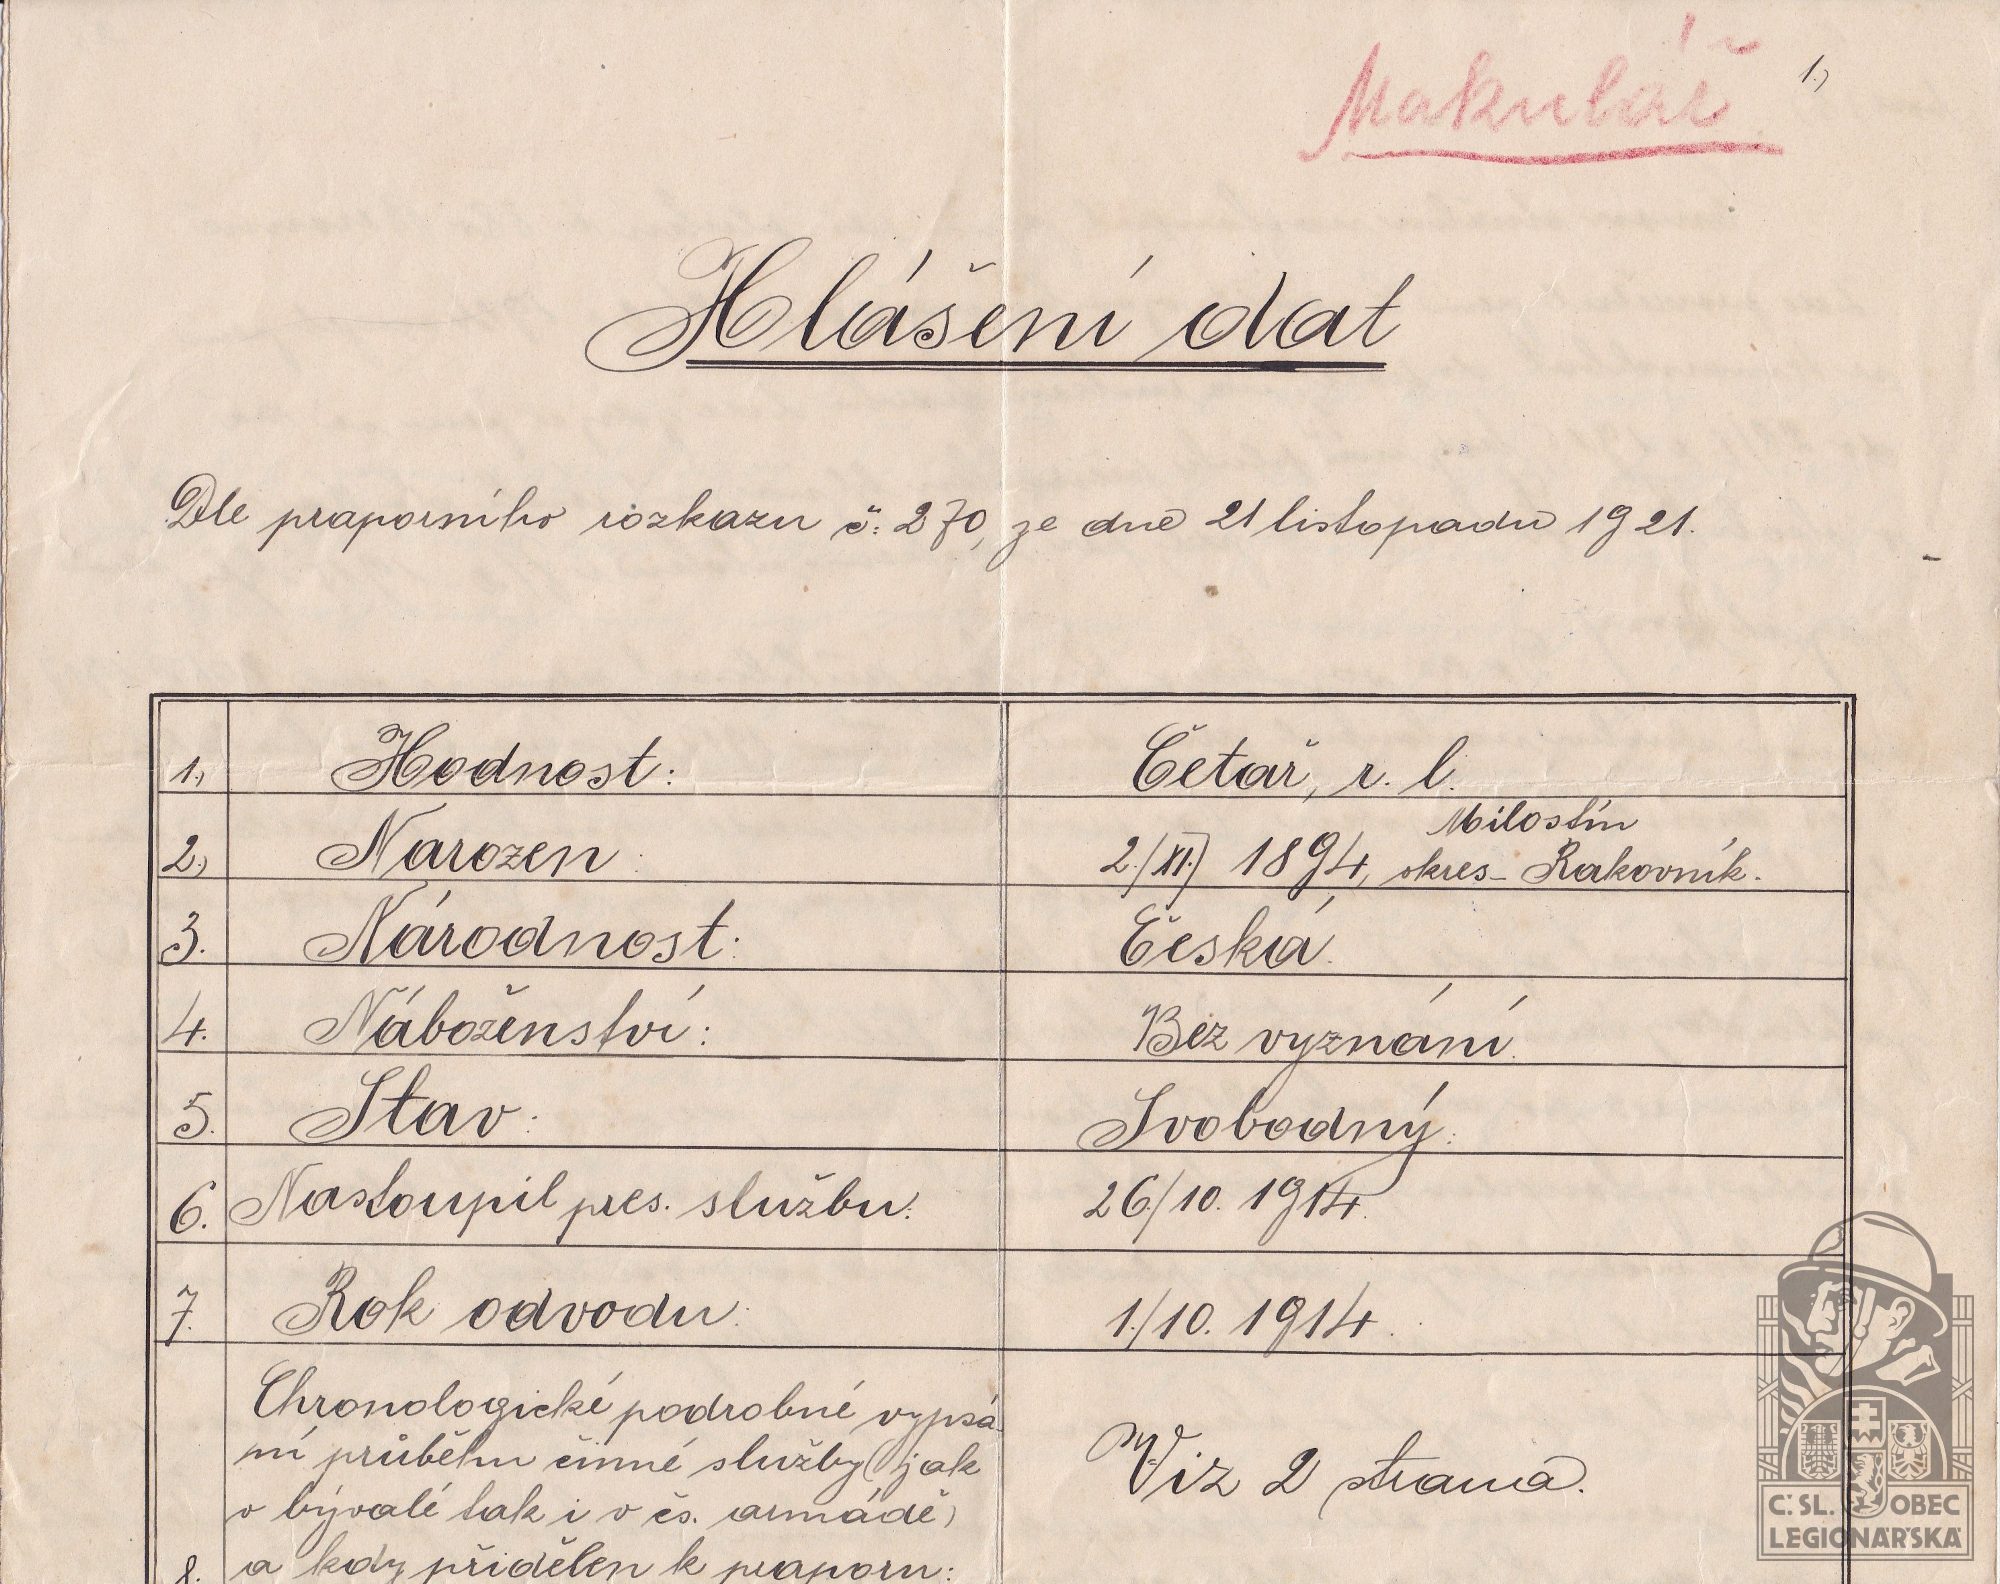 Makulář
1.)
Hlášení dat
Dle praporního rozkazu č: 270, ze dne 21 listopadu 1921.
1.) Hodnost: Četař, r. l.
2.) Narozen: 2./XI.) 1894, Milostín
okres - Rakovník.
3. Národnost: Česká.
4. Náboženství: Bez vyznání.
5. Stav: Svobodný.
6. Nastoupil pres. službu: 26./10. 1914.
7. Rok odvodu: 1./10. 1914.
Chronologické podrobné vypsá-
ní průběhu činné služby (jak
v bývalé tak i v čs. armádě)
8. a kdy přidělen k praporu:
Viz 2 strana.
Č. SL. OBEC
LEGIONÁŘSKÁ